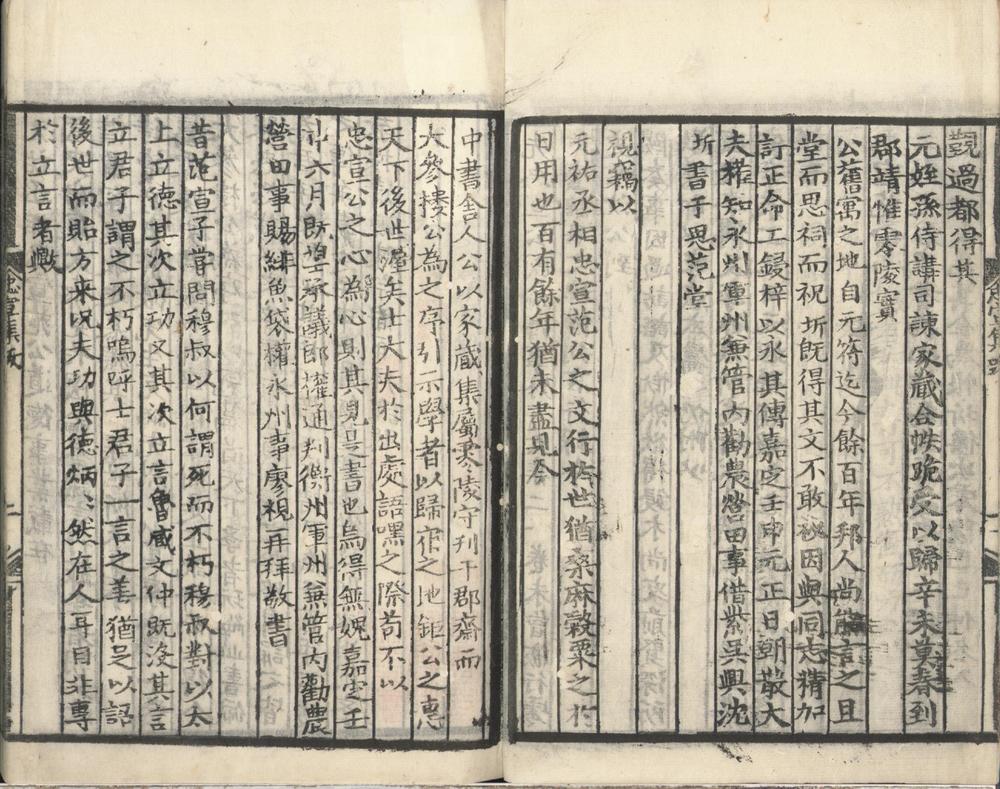 覲過都得其
元姪孫侍講司諫家藏合帙跪受以歸辛未莫春到
郡靖惟零陵實
公舊寓之地自元符迄今餘百年邦人尚能言之且
堂而思祠而祝圻既得其文不敢祕因與同志精加
訂正命工鋟梓以永其傳嘉定壬申元正日朝散大
夫權知永州軍州兼管内勸農營田事借紫吳興沈
圻書于思范堂
視藁以
元祐丞相忠宣范公之文行於世猶桑麻穀粟之於
日用也百有餘年猶未盡見今
中書舍人公以家藏集屬零陵守刊于郡齋而
大參樓公為之序引示學者以歸休之地鉅公之惠
天下後世渥矣士大夫於出處語嘿之際苟不以
忠宣公之心為心則其見是書也烏得無媿嘉定壬
申六月既望承議郎權通判衡州軍州兼管内勸農
營田事賜緋魚袋權永州事廖視再拜敬書
昔范宣子嘗問穆叔以何謂死而不朽穆叔對以太
上立德其次立功又其次立言魯臧文仲既沒其言
立君子謂之不朽嗚呼士君子一言之善猶足以詔
後世而貽方来况夫功與德炳〻然在人耳目非專
於立言者歟
忠宣集跋
二